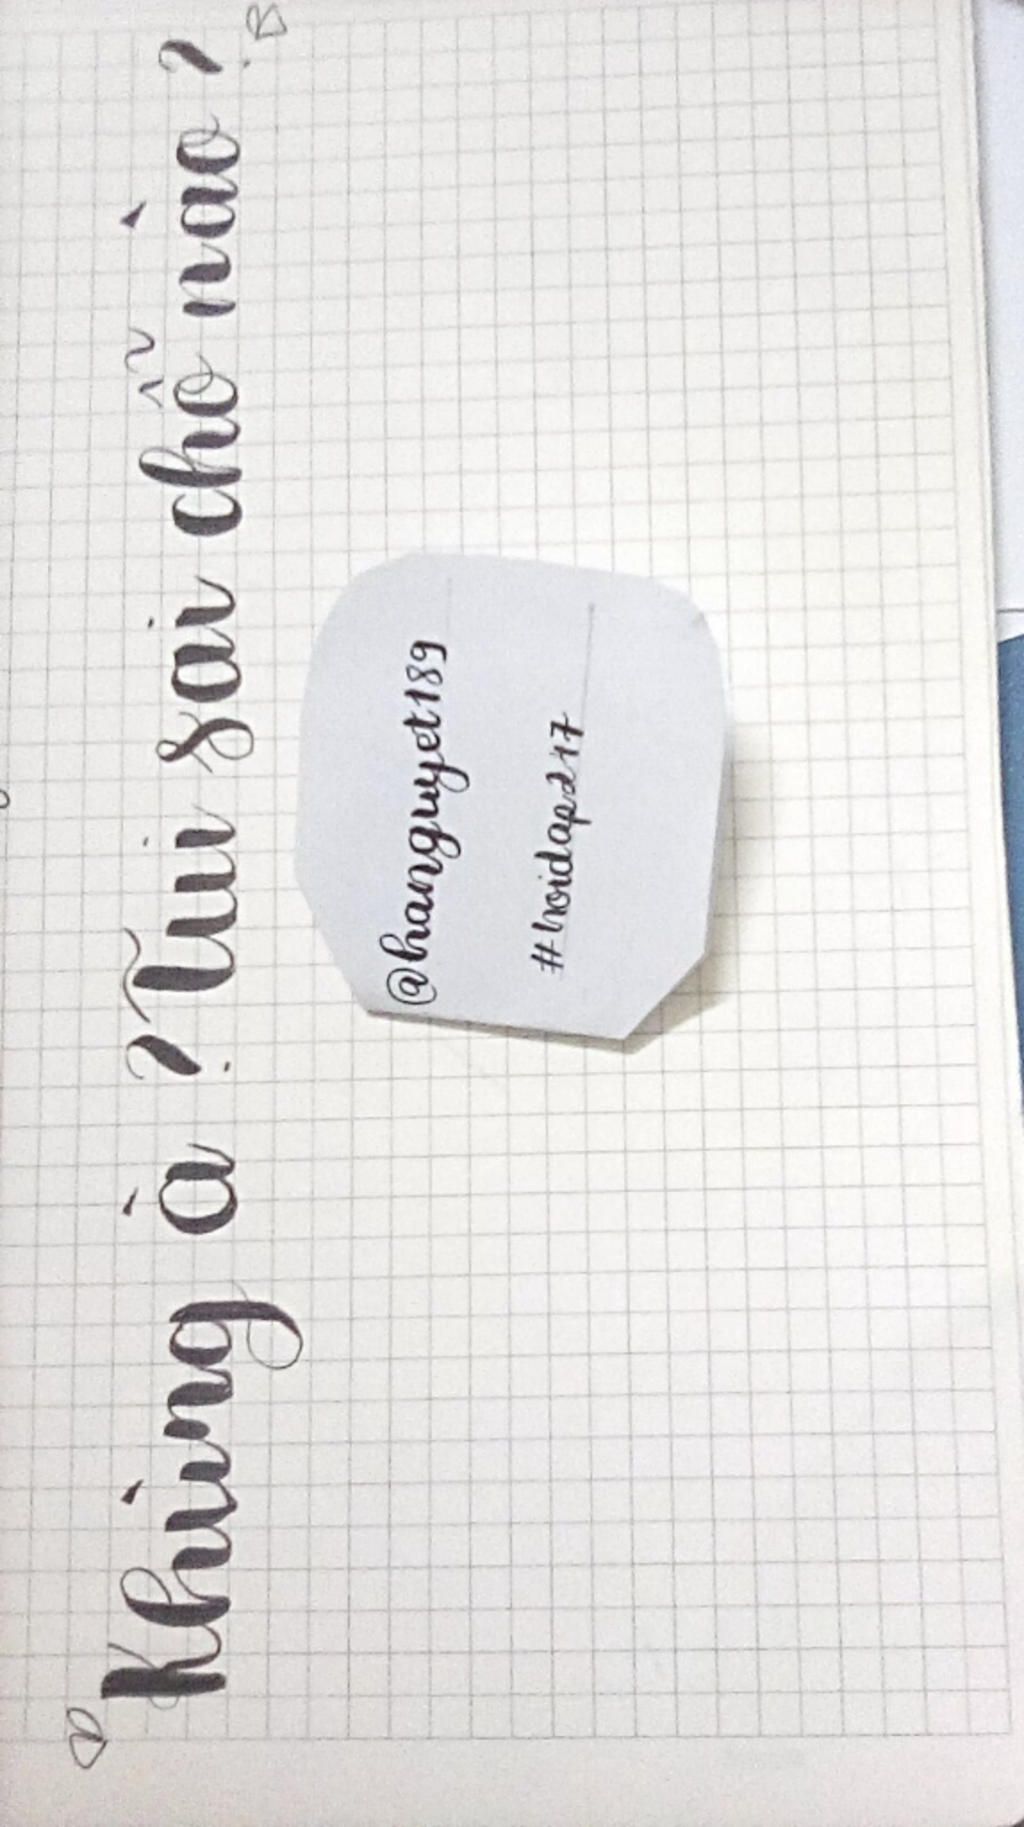 Khùng à ? Tui sai chỗ nào ?
@hanguyet189
#hoidap247